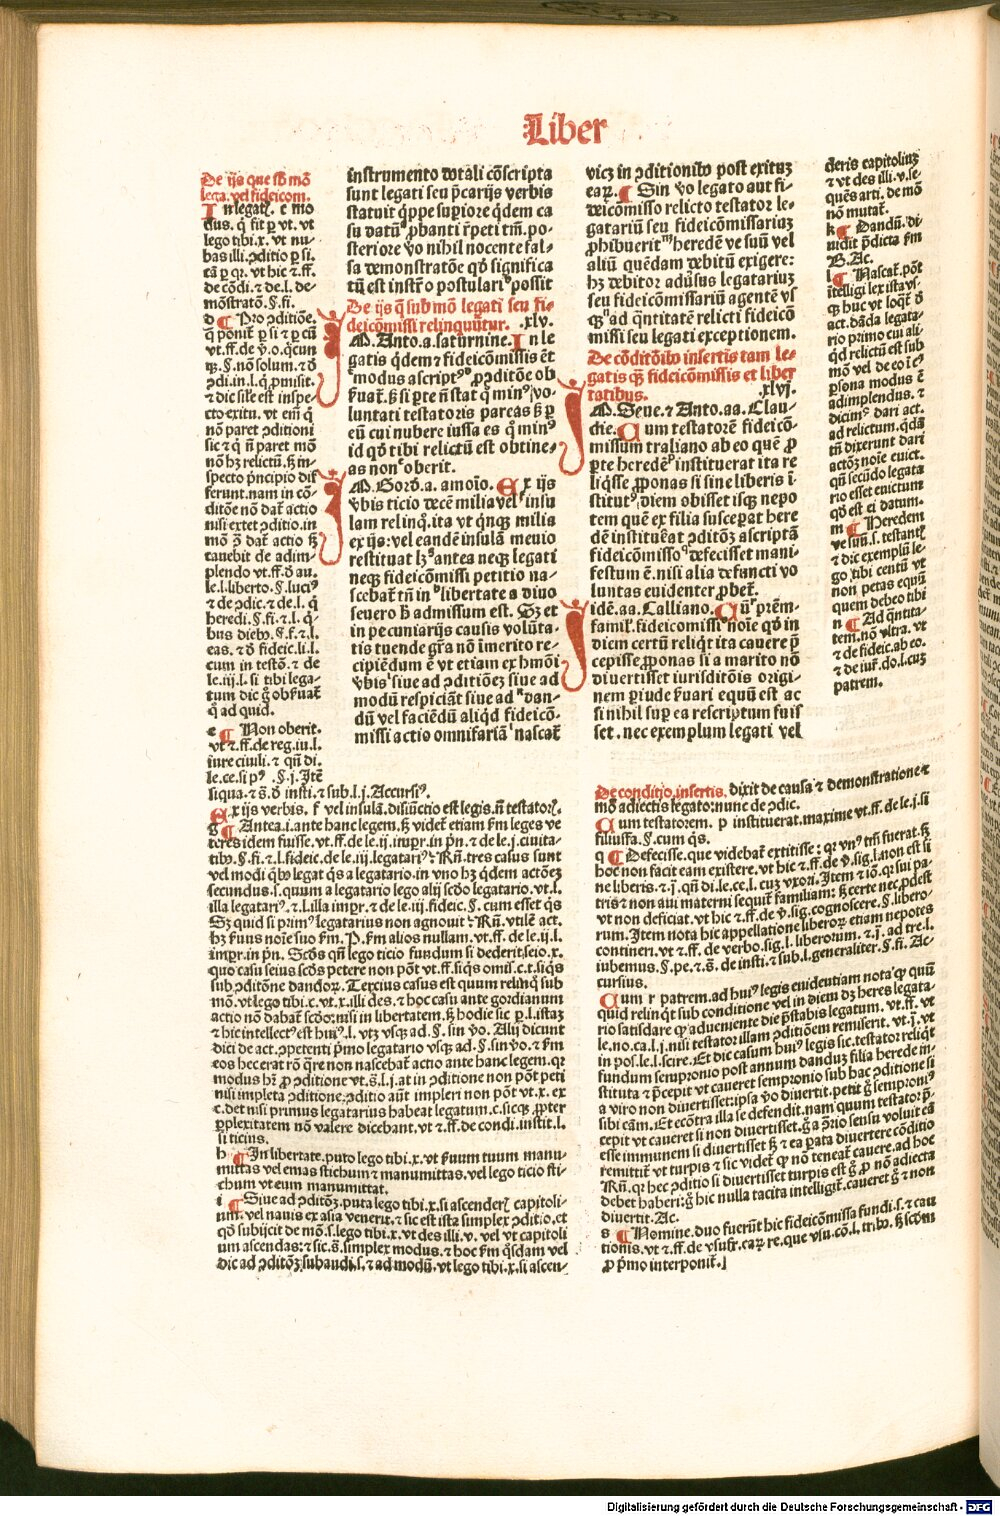 Liber
De ijs que sb mō
lega. vel fideicom.
In legat. c mo
dus. q̇ fit ꝑ vt. vt
lego tibi.x. vt nu-
bas illi. ꝯditio ꝑ si.
vt ff. de ꝟ.o. q̇cun
non paret ꝯditioni
non hꝫ relictū. sꝫ in-
specto pͥncipio dif
ferunt. nam in cō-
ditōe nō dat̄ actio
nisi extet ꝯditio. in
mō ꝟ̄o dat̄ actio sꝫ
cauebit de adim-
plendo vt. ff. ð au.
le.l. liberto. §. luciꝰ
⁊ de ꝯdic. ⁊ de.l. q̇
heredi. §. fi. ⁊.l. q̇-
cum in testō. ⁊ de
le.iij.l. si tibi lega-
q̇ ad quid.
e ¶ Non oberit.
vt ⁊.ff. de reg. iu. l.
iure ciuili. ⁊ qn̄ di.
le.ce. si pꝰ .§.j. Itē
siqua. ⁊ s̄. ð insti. ⁊ sub.l.j. Accursiꝰ.
instrumento dotali cōscripta
sunt legati seu p̄carijs verbis
statuit q̇ppe suꝑiore q̇dem ca
su datū ꝓbanti r̄peti tm̄. po-
steriore ꝟo nihil nocente fal-
sa demonstratōe qð significa
tū est instr̄o postulari possit
De ijs q̄ sub mō legati seu fi-
deicōmissi relinquūtur. .xlv.
A. Anto. a. saturnine. In le
gatis q̇dem ⁊ fideicōmissis ēt
modus ascriptꝰ ꝓ ꝯditōe ob
ẜuat̄. sꝫ si ꝑ te n̄ stat q̇ minꝰ vo-
luntati testatoris pareas sꝫ ꝑ
eū cui nubere iussa es q̇ minꝰ
id qð tibi relictū est obtine-
as non oberit.
A. Gorð. a. amoīo. Ex ijs
ꝟbis ticio decē milia vel insu
lam relinq̇. ita vt q̇nqꝫ milia
ex ijs: vel eandē insulā meuio
restituat lꝫ antea neqꝫ legati
neqꝫ fideicōmissi petitio na-
scebat̄ tn̄ in libertate a diuo
seuero h̄ admissum est. Sꝫ et
in pecuniarijs causis volūta-
tis tuende gr̄a nō īmerito re-
cipiēdum ē vt etiam ex hmōi
ꝟbis siue ad ꝯditiōeꝫ siue ad
modū respiciāt siue ad dan-
dū vel faciēdū aliqð fideicō-
missi actio omnifariā nascat̄
vicꝫ in ꝯditionibꝰ post exituꝫ
eaꝝ. ¶ Sin ꝟo legato aut fi-
deicōmisso relicto testator le-
gatariū seu fideicōmissariuꝫ
ꝓhibuerit heredē ve suū vel
aliū quēdam debitū exigere:
hꝫ debitor adꝟsus legatariuꝫ
seu fideicōmissariū agentē vs
qꝫ ad q̄ntitatē relicti fideicō
missi seu legati exceptionem.
De cōditōibꝰ insertis tam le-
gatis qꝫ fideicōmissis et liber
tatibus. .xlvj.
A. Seue. ⁊ Anto. aa. Clau-
die. Cum testatorē fideicō-
missum traliano ab eo quē ꝓ
ꝑte heredē instituerat ita re
liq̇sse ꝓponas si sine liberis ī-
stitutꝰ diem obisset isqꝫ nepo
tem quē ex filia suscepat here
dē instituēat ꝯditōꝫ ascriptā
fideicōmisso defecisset mani-
festum ē. nisi alia defuncti vo
luntas euidenter ꝓbet̄.
idē. aa. Calliano. Cū pr̄em-
famil̓. fideicomissi noīe qð in
diem certū reliq̇t ita cauere p̄
cepisse ꝓponas si a marito nō
diuertisset iurisditōis origi-
nem ꝑiude ẜuari equū est ac
si nihil suꝑ ea rescriptum fuis
set. nec exemplum legati vel
deris capitoliuꝫ
⁊ vt des illi.v. se-
quēs arti. de mō
nō mutat̄.
k ¶ Dandū. di-
uidit p̄dicta ẜm
B. Ac.
l ¶ Nascat̄. pōt
ītelligi lex ista vs-
qꝫ huc vt loqt̄ ð
act. dāda legata-
rio primo cui ali-
qð relictū est sub
mō vel de eo ī cꝰ
ꝑsona modus ē
adimplendus. ⁊
dicimꝰ dari act.
ad relictum. q̇dā
tn̄ dixerunt dari
actōꝫ noīe euict.
qn̄ secūdo legata
rio esset euictum
qð est ei datum.
m ¶ Heredem
ve suū. s. testantꝭ
⁊ dic exemplū le-
go tibi centū vt
non petas equū
quem debeo tibi
n ¶ Ad q̄ntita-
tem. nō vltra. vt
⁊ de fideic. ab eo.
⁊ de iur̄. do.l. cuꝫ
patrem.
Ex ijs verbis. ẜ vel insulā. disiūctio est legis. n̄ testatorꝭ.
g ¶ Antea.i. ante hanc legem. sꝫ videt̄ etiam ẜm leges ve
teres idem fuisse. vt.ff. de le.ij. īmpꝛ. in pͥn. ⁊ de le.j. ciuita-
tibꝰ. §. fi. ⁊.l. fideic. de le.iij. legatariꝰ. Rn̄. tres casus sunt
vel modi q̇bꝰ legat q̇s a legatario. in vno hꝫ q̇dem actōeꝫ
secundus .s. quum a legatario lego alij scđo legatario. vt.l.
illa legatariꝰ. ⁊.l. illa impꝛ. ⁊ de le.iij. fideic. §. cum esset q̇s
Sꝫ quid si primꝰ legatarius non agnouit. Rn̄. vtilē act.
hꝫ ẜuus noīe suo ẜm. P. ẜm alios nullam. vt.ff. de le.ij.l.
īmpꝛ. in pͥn. Scđs qn̄ lego ticio fundum si dederit seio.x.
quo casu seius scđs petere non pōt vt.ff. siq̇s omis. c.t. siq̇s
sub ꝯditōne dandoꝝ. Tercius casus est quum relinq̇ sub
mō. vt lego tibi.c. vt.x. illi des. ⁊ hoc casu ante gordianum
actio nō dabat̄ scđo: nisi in libertatem. sꝫ hodie sic ꝑ.l. istaꝫ
⁊ hic intellectꝰ est huiꝰ.l. vtꝫ vsqꝫ ad. §. sin ꝟo. Alij dicunt
dici de act. ꝯpetenti p̄mo legatario vsqꝫ ad. §. sin ꝟo. ⁊ ẜm
eos hec erat rō q̄re non nascebat̄ actio ante hanc legem. qꝛ
modus hr̄ ꝓ ꝯditione vt. s̄.l.j. at in ꝯditione non pōt peti
nisi impleta ꝯditione: ꝯditio aūt impleri non pōt vt.x. ex
c. det nisi primus legatarius habeat legatum.c. sicqꝫ ꝓpter
ꝑplexitatem nō valere dicebant. vt ⁊.ff. de condi. instit.l.
si ticius.
h ¶ In libertate. puto lego tibi.x. vt ẜuum tuum manu-
mittas vel emas stichum ⁊ manumittas. vel lego ticio sti-
chum vt eum manumittat.
i ¶ Siue ad ꝯditōꝫ. puta lego tibi.x. si ascenderꝭ capitoli-
um. vel nauis ex asia venerit. ⁊ sic est ista simplex ꝯditio. et
qð subijcit de mō. s. lego tibi.x. vt des illi.v. vel vt capitoli
um ascendas: ⁊ sic. s̄. simplex modus. ⁊ hoc ẜm q̇sdam vel
dic ad ꝯditōꝫ: subaudi. s. ⁊ ad modū. vt lego tibi.x. si ascen-
De conditio. insertis. dixit de causa ⁊ demonstratione ⁊
mō adiectis legato: nunc de ꝯdic.
Cum testatorem. p instituerat. maxime vt.ff. de le.j. si
filiusfa. §. cum q̇s.
q ¶ Defecisse. que videbat̄ extitisse: qꝛ vnꝰ tm̄ fuerat. sꝫ
hoc non facit eam existere. vt hic ⁊.ff. de ꝟ. sig.l. non est si
ne liberis. ⁊.j̄. qn̄ di. le.ce.l. cuꝫ vxoꝛi. Item ⁊ iō. qꝛ sui pa-
tris ⁊ non aui materni sequit̄ familiam: sꝫ certe nec ꝓdest
vt non deficiat. vt hic ⁊.ff. de ꝟ. sig. cognoscere. §. libero-
rum. Item nota hic appellatione liberoꝝ etiam nepotes
contineri. vt ⁊.ff. de verbo. sig.l. liberorum. ⁊.j̄. ad tre.l.
iubemus. §. pe. ⁊.s̄. de insti. ⁊ sub.l. generaliter. §. fi. Ac-
cursius.
Cum r patrem. ad huiꝰ legis euidentiam nota qꝫ quū
quid relinq̇t̄ sub conditione vel in diem dꝫ heres legata-
rio satisdare qꝫ adueniente die p̄stabis legatum. vt.ff. vt
le. no. ca.l.j. nisi testator illam ꝯditiōem remiserit. vt.j̄. vt
in pos. le.l. scire. Et dic casum huiꝰ legis sic. testator reliq̇t
fundum sempronio post annum danduꝫ filia herede in-
stituta ⁊ p̄cepit vt caueret sempronio sub hac ꝯditione si
a viro non diuertisset: ipsa ꝟo diuertit. petit g̊ semproniꝰ
sibi cām. Et ecōtra illa se defendit. nam quum testator p̄-
cepit vt caueret si non diuertisset. g̊ a ꝯ̄rio sensu voluit eā
esse immunem si diuertisset sꝫ ⁊ ea parata diuertere cōditio
remittit̄ vt turpis ⁊ sic videt̄ qꝫ nō teneat̄ cauere. ad hoc
Rn̄. qꝛ hec ꝯditio si diuertisset turpis est g̊ ꝓ nō adiecta
debet haberi: g̊ hic nulla tacita intelligit̄. caueret g̊ ⁊ non
diuertit. Ac.
s ¶ Nomine. duo fuerūt hic fideicōmissa fundi. s. ⁊ cau
tionis. vt ⁊.ff. de vsufr. eaꝝ re. que vsu. cō.l. tribꝰ. sꝫ scđm
ꝓ p̄mo interponit̄.
Digitalisierung gefördert durch die Deutsche Forschungsgemeinschaft - DFG